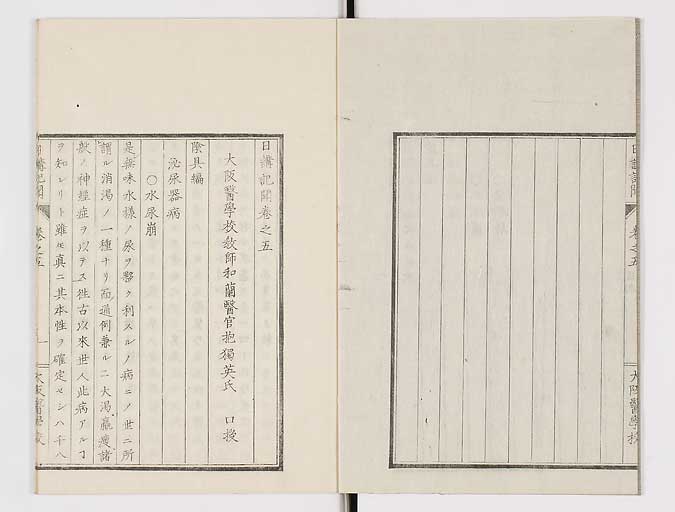 日講記聞
卷之五
大阪醫學校
日講記聞卷之五
大阪醫學校敎師和蘭醫官抱獨英氏 口授
陰具編
泌尿器病
○水尿崩
是無味水樣ノ尿ヲ夥ク利スルノ病ニノ世ニ所
謂ル消渴ノ一種ナリ而通例兼ルニ大渴羸瘦諸
般ノ神經症ヲ以テス往古以來世人此病アルヿ
ヲ知レリト雖𪜈眞ニ其本性ヲ確定セシハ千八
日講記聞
卷之五
一
大阪醫學校